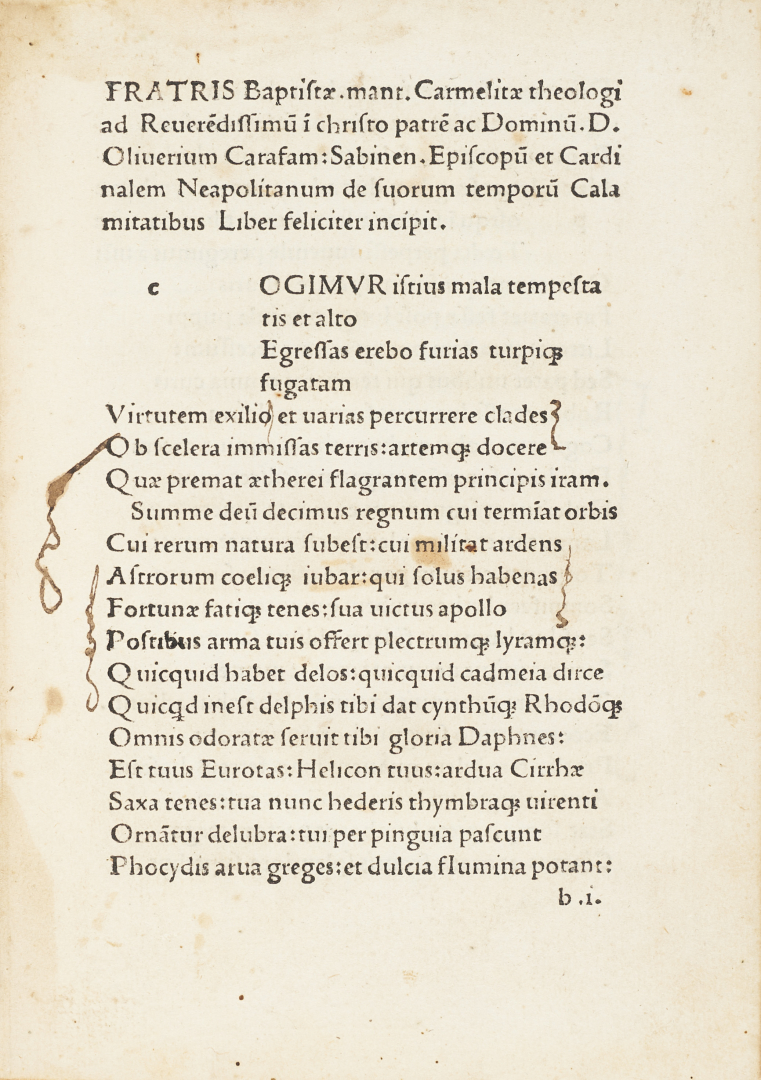 FRATRIS Baptiſtæ.mant.Carmelitæ theologi
ad Reuerēdiſſimū ī chriſto patrē ac Dominū.D.
Oliuerium Carafam:Sabinen.Epiſcopū et Cardi
nalem Neapolitanum de ſuorum temporū Cala
mitatibus Liber feliciter incipit.
c OGIMVR iſtius mala tempeſta
tis et alto
Egreſſas erebo furias turpiqꝫ
fugatam
Virtutem exilio et uarias percurrere clades
Ob ſcelera immiſſas terris:artemqꝫ docere
Quæ premat ætherei flagrantem principis iram.
Summe deū decimus regnum cui termīat orbis
Cui rerum natura ſubeſt:cui militat ardens
Aſtrorum coeliqꝫ iubar:qui ſolus habenas
Fortunæ fatiqꝫ tenes:ſua uictus apollo
Poſtibus arma tuis offert plectrumqꝫ lyramqꝫ:
Quicquid habet delos:quicquid cadmeia dirce
Quicꝗd ineſt delphis tibi dat cynthūqꝫ Rhodōqꝫ
Omnis odoratæ ſeruit tibi gloria Daphnes:
Eſt tuus Eurotas:Helicon tuus:ardua Cirrhæ
Saxa tenes:tua nunc hederis thymbraqꝫ uirenti
Ornātur delubra:tui per pinguia paſcunt
Phocydis arua greges:et dulcia flumina potant:
b .i.